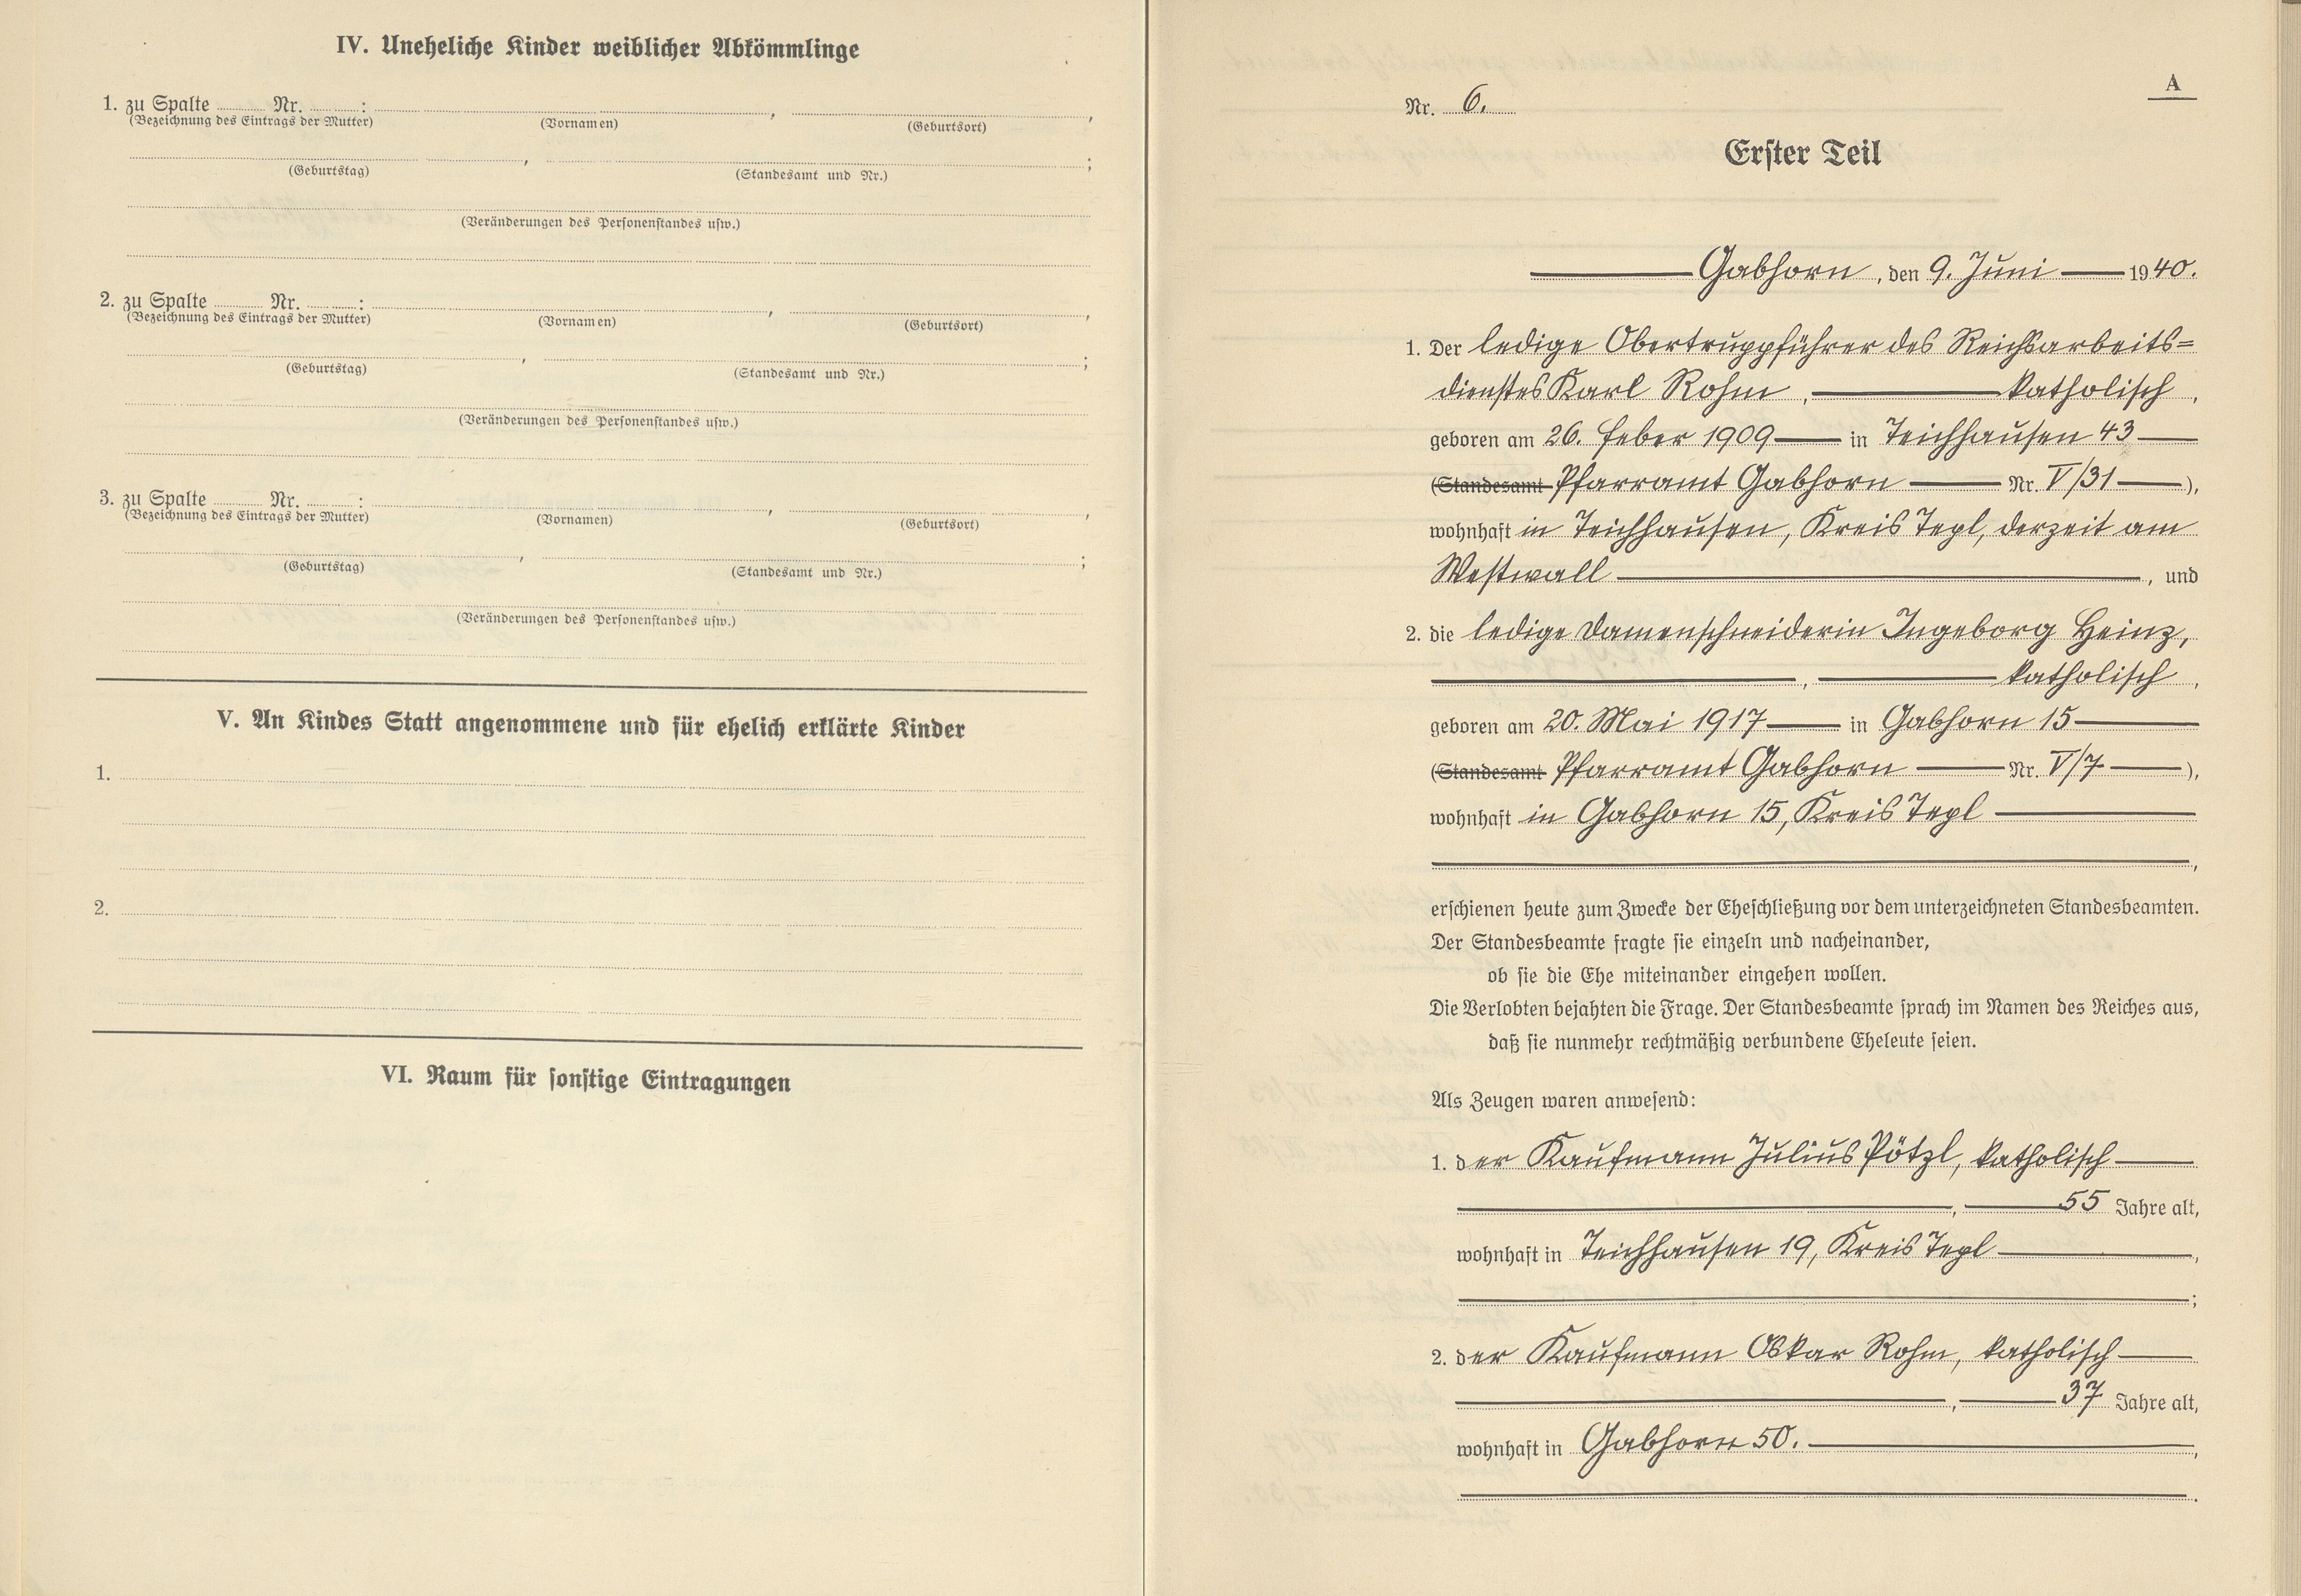 IV. Uneheliche Kinder weiblicher Abkömmlinge
1. zu Spalte ........ Nr. ........ :
(Bezeichnung des Eintrags der Mutter) (Vornamen) (Geburtsort)
(Geburtstag) (Standesamt und Nr.)
(Veränderungen des Personenstandes usw.)
2. zu Spalte ........ Nr. ........ :
(Bezeichnung des Eintrags der Mutter) (Vornamen) (Geburtsort)
(Geburtstag) (Standesamt und Nr.)
(Veränderungen des Personenstandes usw.)
3. zu Spalte ........ Nr. ........ :
(Bezeichnung des Eintrags der Mutter) (Vornamen) (Geburtsort)
(Geburtstag) (Standesamt und Nr.)
(Veränderungen des Personenstandes usw.)
V. An Kindes Statt angenommene und für ehelich erklärte Kinder
1.
2.
VI. Raum für sonstige Eintragungen
A
Nr. 6.
Erster Teil
Gabhorn, den 9. Juni 1940.
1. Der ledige Obertruppführer des Reichsarbeits=
dienstes Karl Rohm, katholisch,
geboren am 26. Feber 1909 in Teichhausen 43
(Standesamt Pfarramt Gabhorn Nr. V/31),
wohnhaft in Teichhausen, Kreis Tepl, derzeit am
Westwall, und
2. die ledige Damenschneiderin Ingeborg Heinz,
, katholisch,
geboren am 20. Mai 1917 in Gabhorn 15
(Standesamt Pfarramt Gabhorn Nr. V/7),
wohnhaft in Gabhorn 15, Kreis Tepl
,
erschienen heute zum Zwecke der Eheschließung vor dem unterzeichneten Standesbeamten.
Der Standesbeamte fragte sie einzeln und nacheinander,
ob sie die Ehe miteinander eingehen wollen.
Die Verlobten bejahten die Frage. Der Standesbeamte sprach im Namen des Reiches aus,
daß sie nunmehr rechtmäßig verbundene Eheleute seien.
Als Zeugen waren anwesend:
1. der Kaufmann Julius Pötzl, katholisch
, 55 Jahre alt,
wohnhaft in Teichhausen 19, Kreis Tepl,
;
2. der Kaufmann Oskar Rohm, katholisch
, 37 Jahre alt,
wohnhaft in Gabhorn 50.,
.